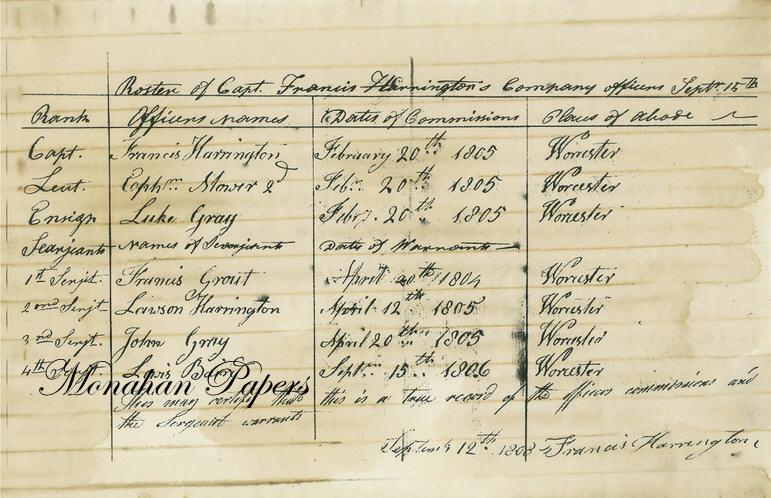 Roster of Capt. Francis Harrington's Company officers Septr. 15th
Rank Officers Names Dates of Commissions Places of Abode
Capt. Francis Harrington February 20th 1805 Worcester
Leut. Ephm. Mower 2d Febr. 20th 1805 Worcester
Ensign Luke Gray Febry. 20th 1805 Worcester
Searjeants Names of Searjeants Dates of Warrants
1st Serjt. Francis Grout April 20th 1804 Worcester
2ond Serjt Lawson Harrington April 12th 1805 Worcester
3rd Serjt. John Gray April 20th 1805 Worcester
4th Lewis Septm. 15th 1806 Worcester
Monahan Papers
This may certify that this is a true record of the officers commissions and
the Sergeant warrants
12th. 1808 Francis Harrington